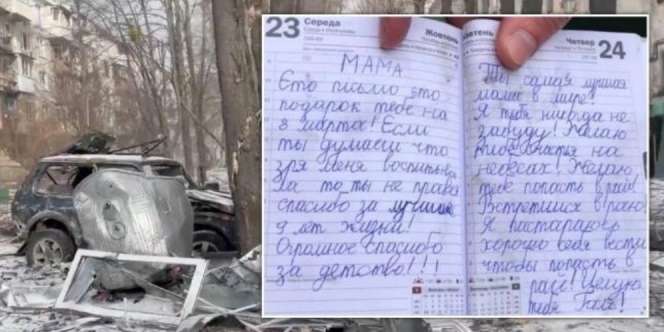 23 Середа
Жовтень
МАМА
Ето письмо это
подарок тебе на
8 марта! Если
ты думаеш что
зря меня воспитывала
то ты не права
спасибо за лучшие
9 лет жизни!
Огромное спасибо
за детство!!!
Четвер 24
Ты самая лучшая
мама в мире!
Я тебя никогда не
забуду! Желаю
на
небесах! Желаю
тебе попасть в рай!
Встретимся в раю!
Я постараюсь
хорошо себя вести
чтобы попасть в
рай! Целую
тебя